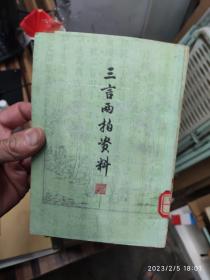 三言兩拍資料
2023/2/5 18:01